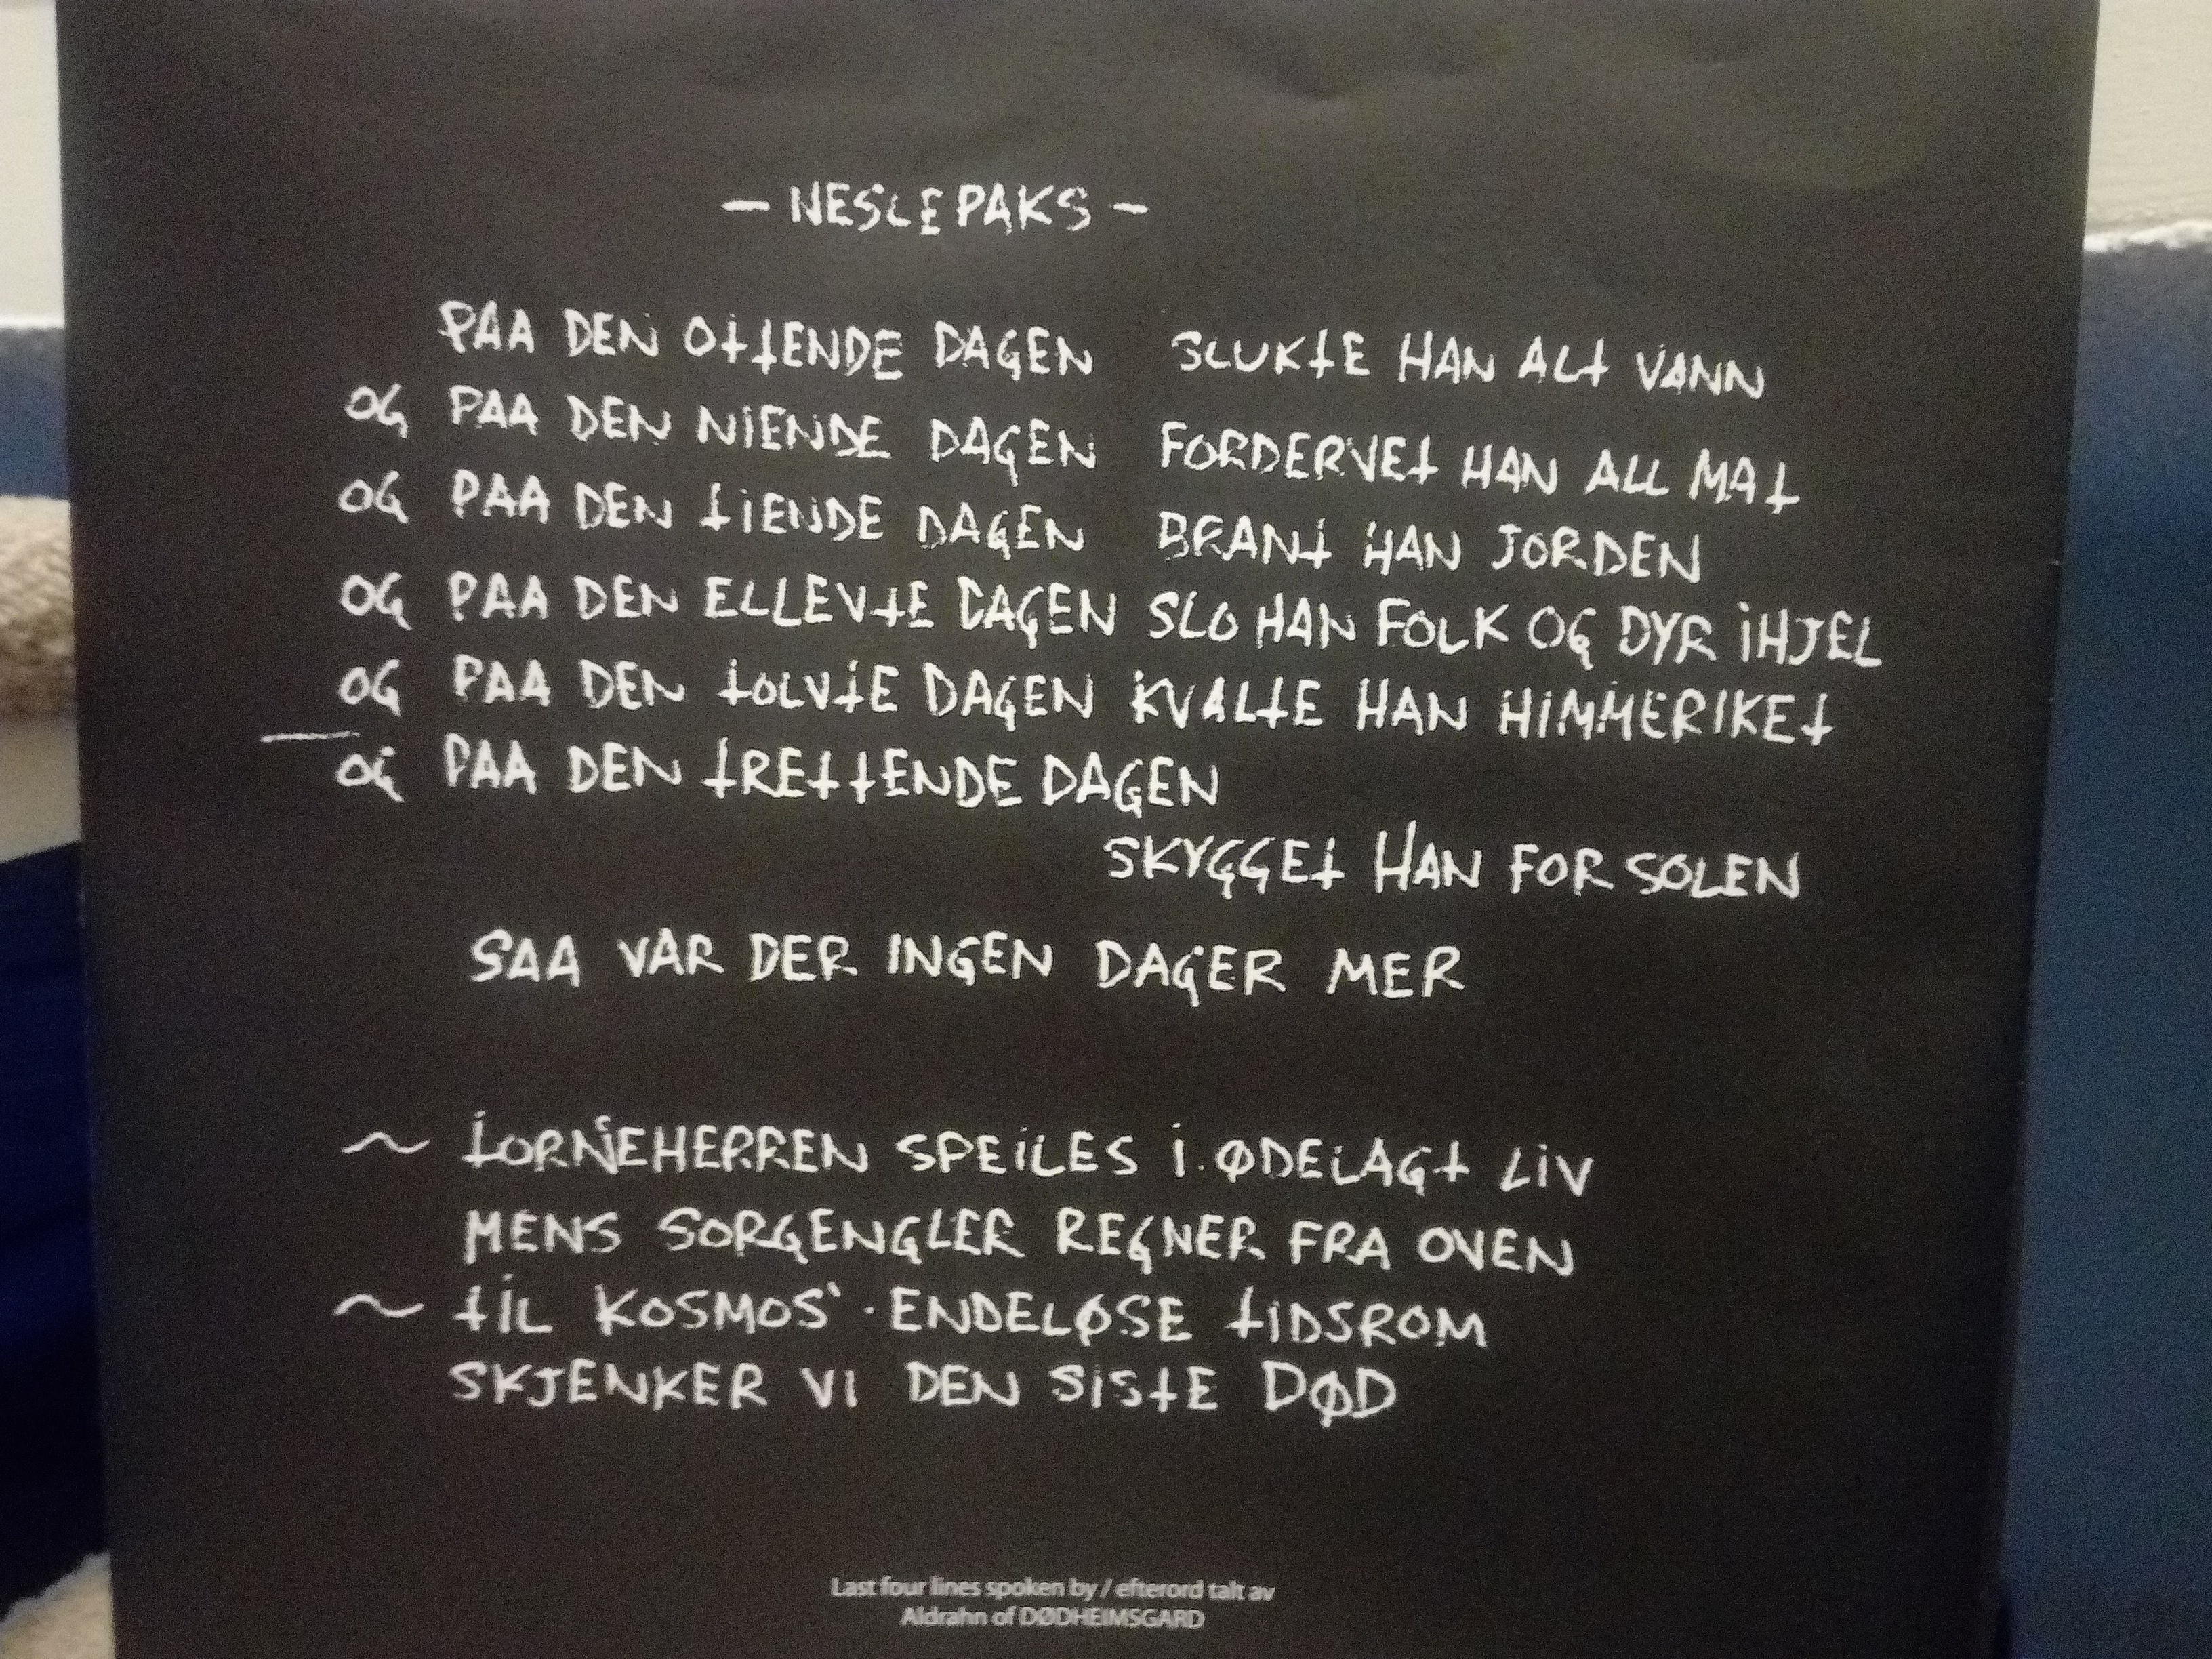 — NESLEPAKS —
PAA DEN OTTENDE DAGEN SLUKTE HAN ALT VANN
OG PAA DEN NIENDE DAGEN FORDERVET HAN ALL MAT
OG PAA DEN TIENDE DAGEN BRANT HAN JORDEN
OG PAA DEN ELLEVTE DAGEN SLO HAN FOLK OG DYR IHJEL
OG PAA DEN TOLVTE DAGEN KVALTE HAN HIMMERIKET
OG PAA DEN TRETTENDE DAGEN
SKYGGET HAN FOR SOLEN
SAA VAR DER INGEN DAGER MER
~ TORNEHERREN SPEILES I ØDELAGT LIV
MENS SORGENGLER REGNER FRA OVEN
~ TIL KOSMOS' ENDELØSE TIDSROM
SKJENKER VI DEN SISTE DØD
Last four lines spoken by / efterord talt av
Aldrahn of DØDHEIMSGARD